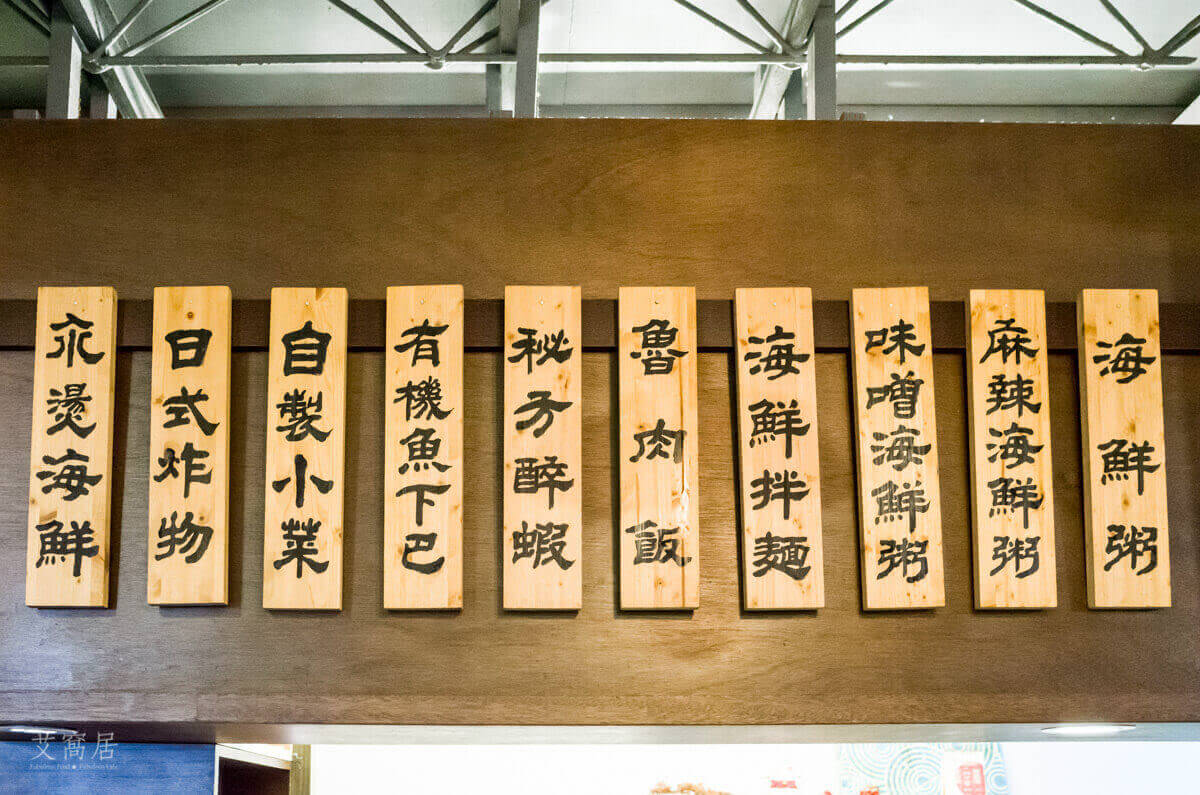 海鮮粥
麻辣海鮮粥
味噌海鮮粥
海鮮拌麵
魯肉飯
秘方醉蝦
有機魚下巴
自製小菜
日式炸物
汆燙海鮮
艾窩居